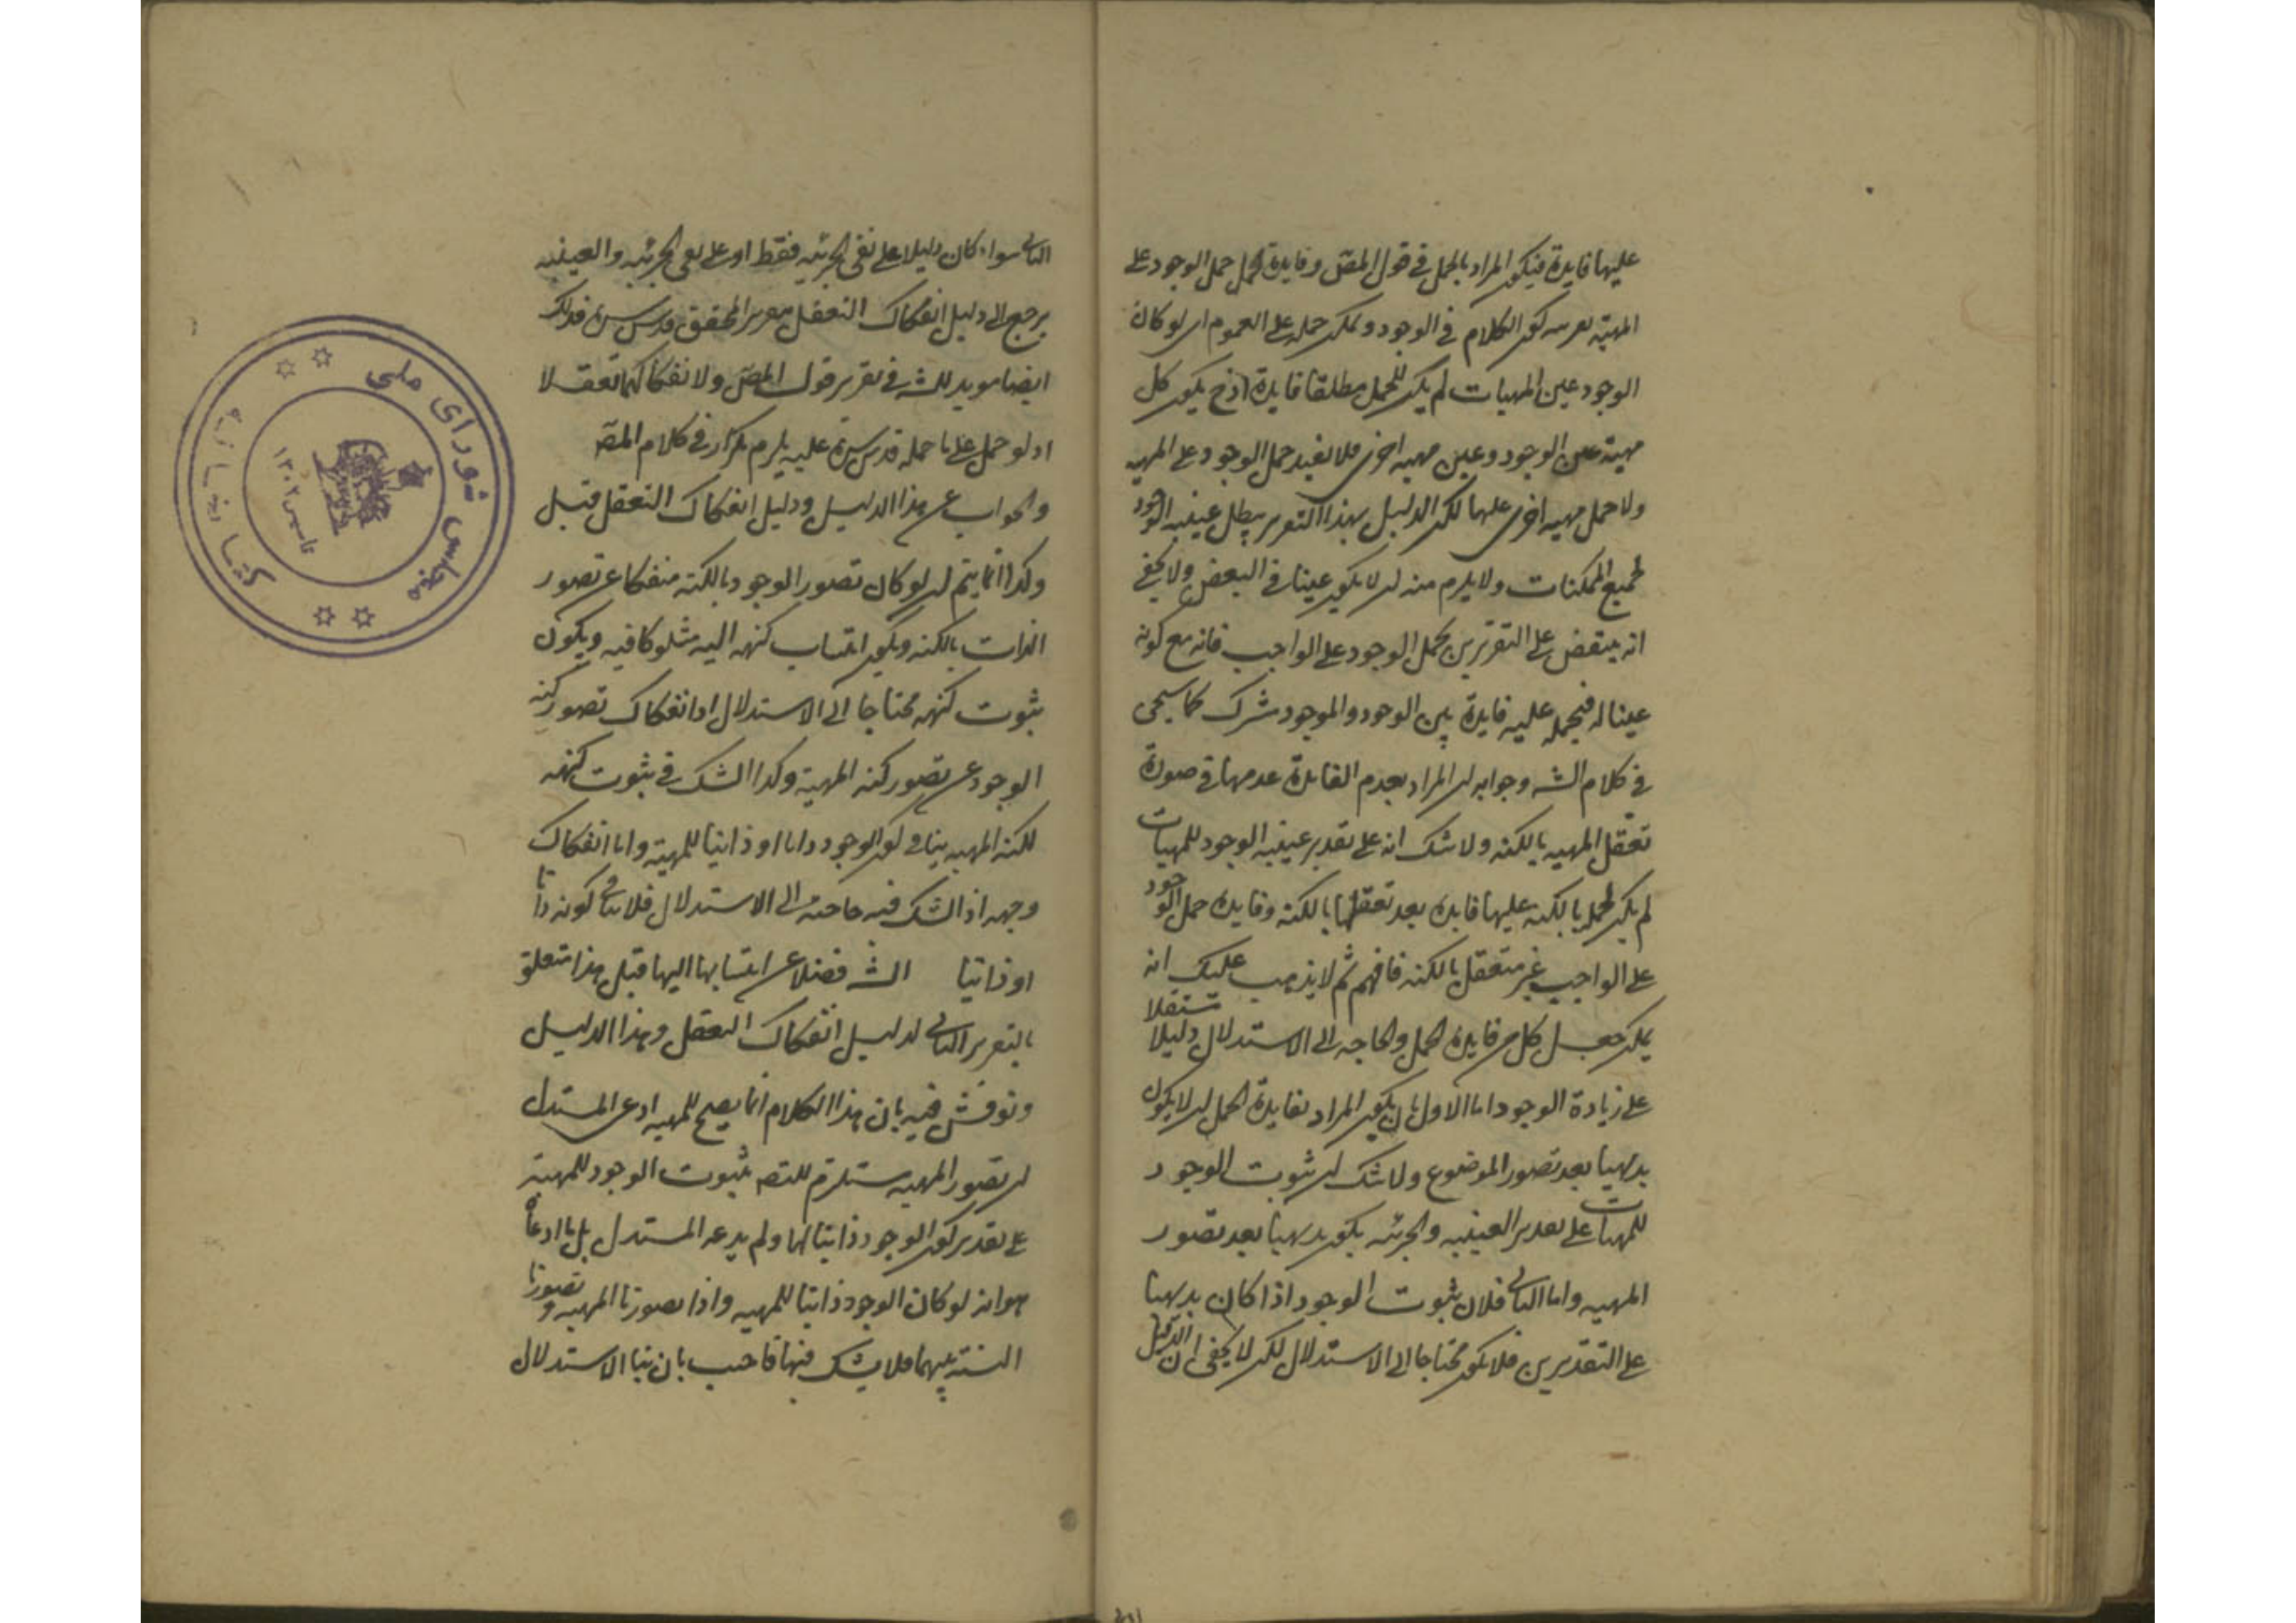 عليها فايدة فيكون المراد بالحمل في قول المصّ وفايدة الحمل حمل الوجود على
المهيّة كون الكلام في الوجود ويمكن حمله على العموم اى لو كان
الوجود عين المهيات لم يكن للحمل مطلقا فايدة اذ ح يكون كل
مهية عين الوجود وعين مهيه اخرى فلا يفيد حمل الوجود على المهيه
ولا حمل مهيه اخرى عليها لكن الدليل بهذا التقرير يبطل عينيه الوجود
لجميع الممكنات ولا يلزم منه ان لا يكون عينا في البعض ولا يخفى
انه ينتقض على التقريرين بحمل الوجود على الواجب فانه مع كونه
عينا له فبحمله عليه فايدة بين الوجود والموجود مشترك كما سيجى
في كلام الشه وجوابه ان المراد بعدم الفايدة عدمها في صورة
تعقل المهيه بالكنه ولا شك انه على تقدير عينيه الوجود للمهيات
لم يكن لحمله بالكنه عليها فايده بعد تعقلها بالكنه وفايده حمل الوجود
على الواجب غير متعقل بالكنه فافهم ثم لا يذهب عليك انه
يمكن جعل كل من فايدة الحمل والحاجه الى الاستدلال دليلا مستقلا
على زيادة الوجود اما الاول بان يكون المراد بفايدة الحمل ان لا يكون
بديهيا بعد تصور الموضوع ولا شك ان ثبوت الوجود
للمهيات على تقدير العينيه والجزئيه يكون بديهيا بعد تصور
المهيه واما الثانى فلان ثبوت الوجود اذا كان بديهيا
على التقديرين فلا يكون محتاجا الى الاستدلال لكن لا يخفى ان الدليل
الثانى سواء كان دليلا على نفى الجزئيه فقط او على نفى الجزئيه والعينيه
يرجع الى دليل انفكاك التعقل المحقق قدس سره فذلك
ايضا مويد للشه في تقرير قول المصّ ولا نفكاكهما تعقلا
اذ لو حمل على ما حمله قدس سره عليه يلزم تكرار في كلام المصّ
والجواب عن هذا الدليل ودليل انفكاك التعقل قبل
وكذا انما يتم ان لو كان تصور الوجود بالكنه منفكا عن تصور
الذات بالكنه ويكون انتساب كنهه اليه مشكوكا فيه ويكون
ثبوت كنهه محتاجا الى الاستدلال اذ انفكاك تصور كنه
الوجود عن تصور كنه المهية وكذا الشك في ثبوت كنهه
لكنه المهيه ينافى كون الوجود ذاتا او ذاتيا للمهية واما انفكاك
وجهه اذ الشك فيه حاجته الى الاستدلال فلا ينافى كونه ذاتا
او ذاتيا الشه فضلا عن انتسابها اليها قبل هذا متعلق
بالتقرير الثانى لدليل انفكاك التعقل وهذا الدليل
ونوقش فيه بان هذا الكلام انما يصح للمهيه ادعى المستدل
ان تصور المهيه مستلزم للتصه بثبوت الوجود للمهية
على تقدير كون الوجود ذاتيا لها ولم يدعه المستدل بل ما ادعاه
هو انه لو كان الوجود ذاتيا للمهيه واذا تصورنا المهيه وتصورنا
النسبة بينهما فلا يشك فيها فاجيب بان بنا الاستدلال
مجلس شوراى ملى
كتابخانه
تاسيس ۱۳۰۲